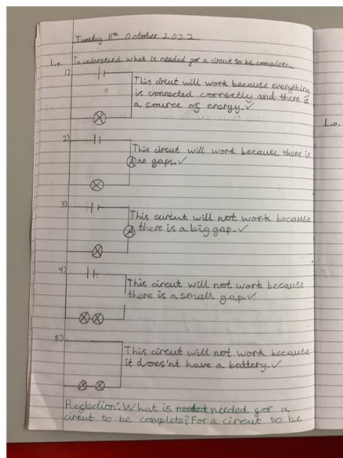 Tuesday 11th October 2022
L.o. To understand what is needed for a circuit to be complete.
1) This circuit will work because everything
is connected correctly and there is
a source of energy. ✓
L.o.
2) This circuit will work because there is
no gaps. ✓
3) This circuit will not work because
there is a big gap. ✓
4) This circuit will not work because
there is a small gap. ✓
5) This circuit will not work because
it does'nt have a battery. ✓
Reflection: What is needed for a
circuit to be complete? For a circuit to be